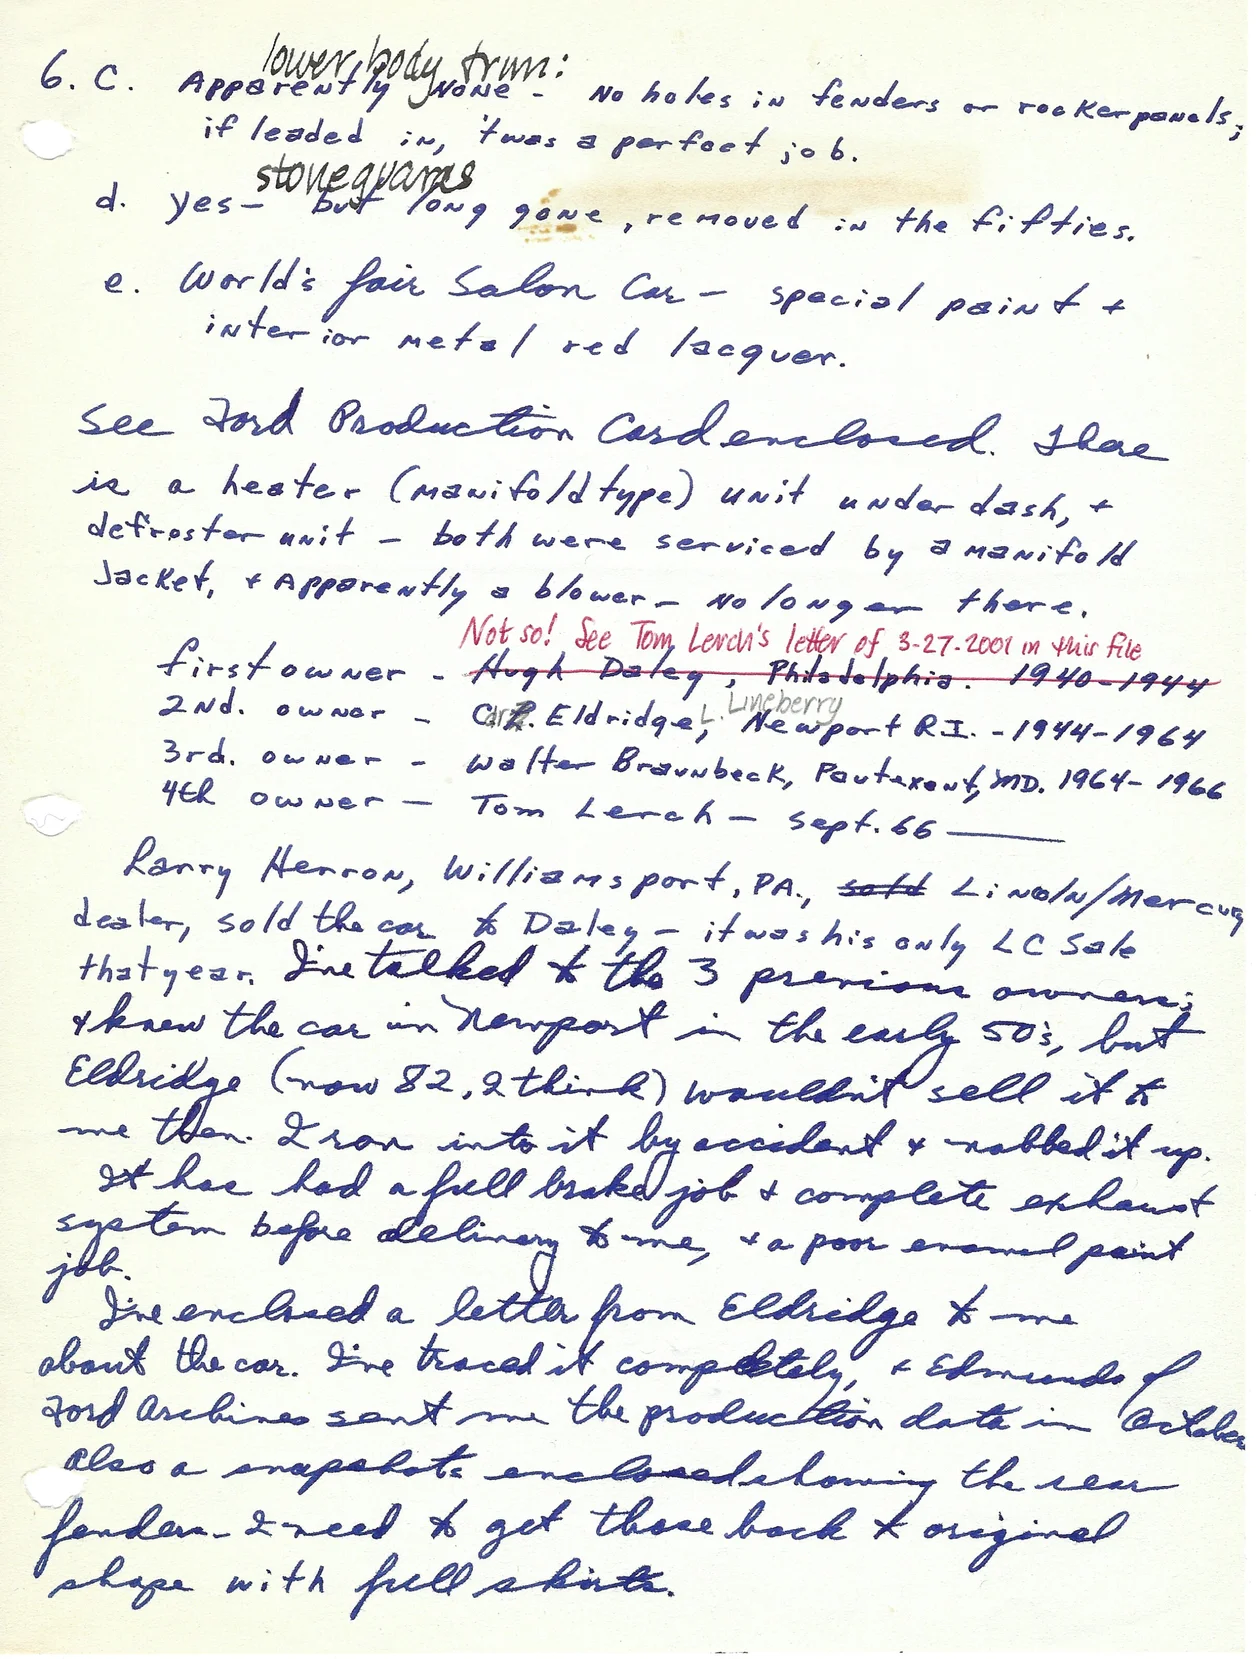 lower body trim:
6. C. Apparently none - No holes in fenders or rocker panels;
if leaded in, 'twas a perfect job.
stoneguards
d. yes - but long gone, removed in the fifties.
e. World's fair Salon Car - special paint +
interior metal red lacquer.
See Ford Production Card enclosed. There
is a heater (manifold type) unit under dash, +
defroster unit - both were serviced by a manifold
Jacket, + Apparently a blower - no longer there.
Not so! See Tom Lerch's letter of 3-27-2001 in this file
first owner - Hugh Daley, Philadelphia. 1940-1944
L. Lineberry
2nd. owner - Eldridge, Newport R.I. - 1944-1964
3rd. owner - Walter Braunbeck, Pautexent, MD. 1964-1966
4th owner - Tom Lerch - sept. 66 ———
Larry Herron, Williamsport, PA., sold Lincoln/Mercury
dealer, sold the car to Daley - it was his only LC Sale
that year. I've talked to the 3 previous owners;
+ knew the car in Newport in the early 50's, but
Eldridge (now 82, I think) wouldn't sell it to
me then. I ran into it by accident + nabbed it up.
It has had a full brake job + complete exhaust
system before delivery to me, + a poor enamel paint
job.
I've enclosed a letter from Eldridge to me
about the car. I've traced it completely, + Edmunds of
Ford Archives sent me the production data in October
Also a snapshots enclosed showing the rear
fenders - I need to get those back to original
shape with full skirts.